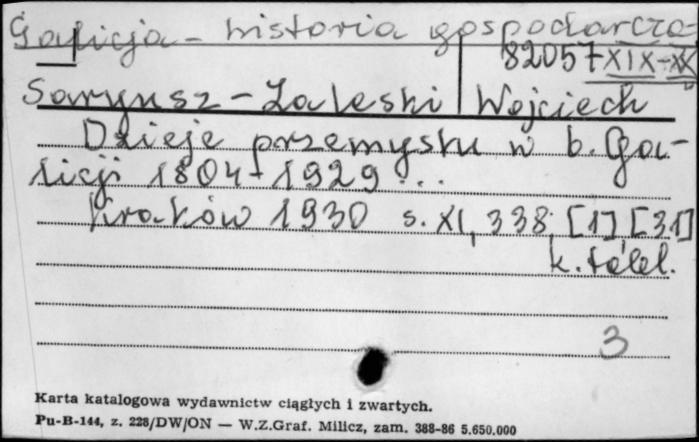 Galicja - historia gospodarcza
82057 XIX-XX
Saryusz-Zaleski Wojciech
Dzieje przemysłu w b. Ga-
licji 1804-1929 ...
Kraków 1930 s. XI, 338, [1] [31]
k. tabl.
3
Karta katalogowa wydawnictw ciągłych i zwartych.
Pu-B-144, z. 228/DW/ON — W.Z.Graf. Milicz, zam. 388-86 5.650.000